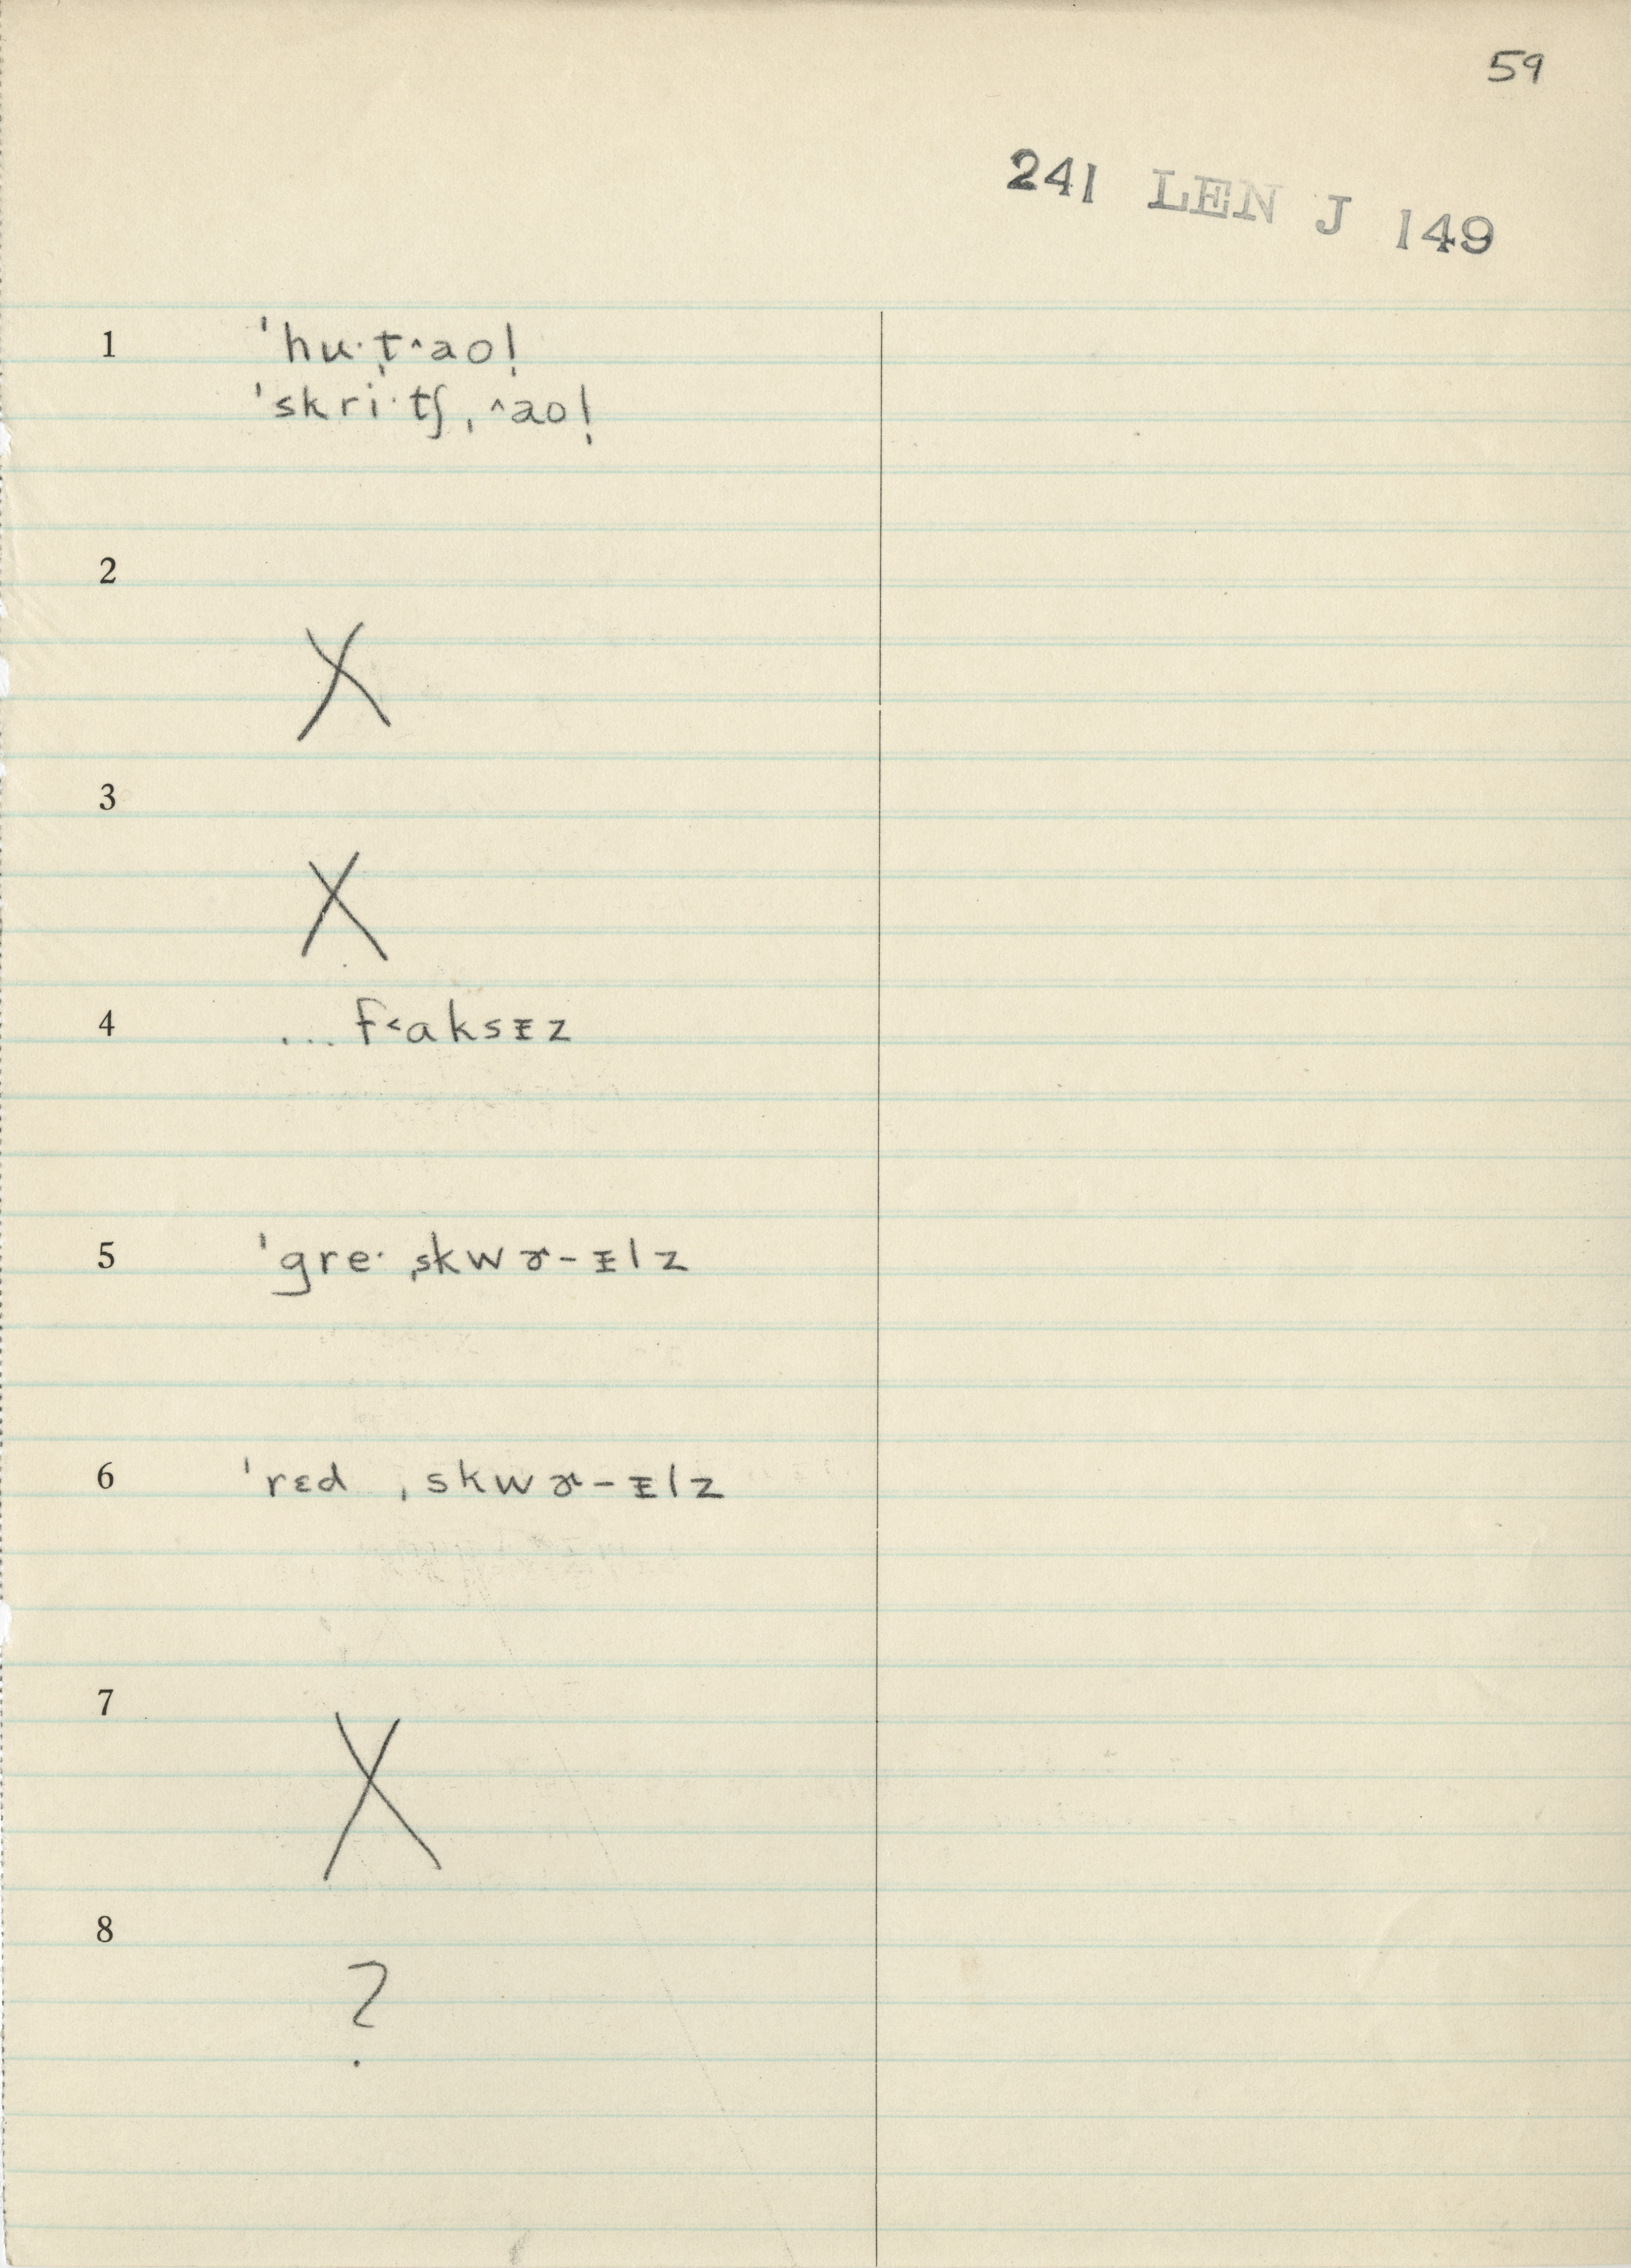 59
241 LEN J 149
1 ˈhu·t̩˄aol̩
ˈskri·tʃ ˌ˄aol̩
2 X
3 X
4 ... f˂aksᵻz
5 ˈgre· ˌskwɚ-ᵻlz
6 ˈrɛd ˌskwɚ-ᵻlz
7 X
8 ?